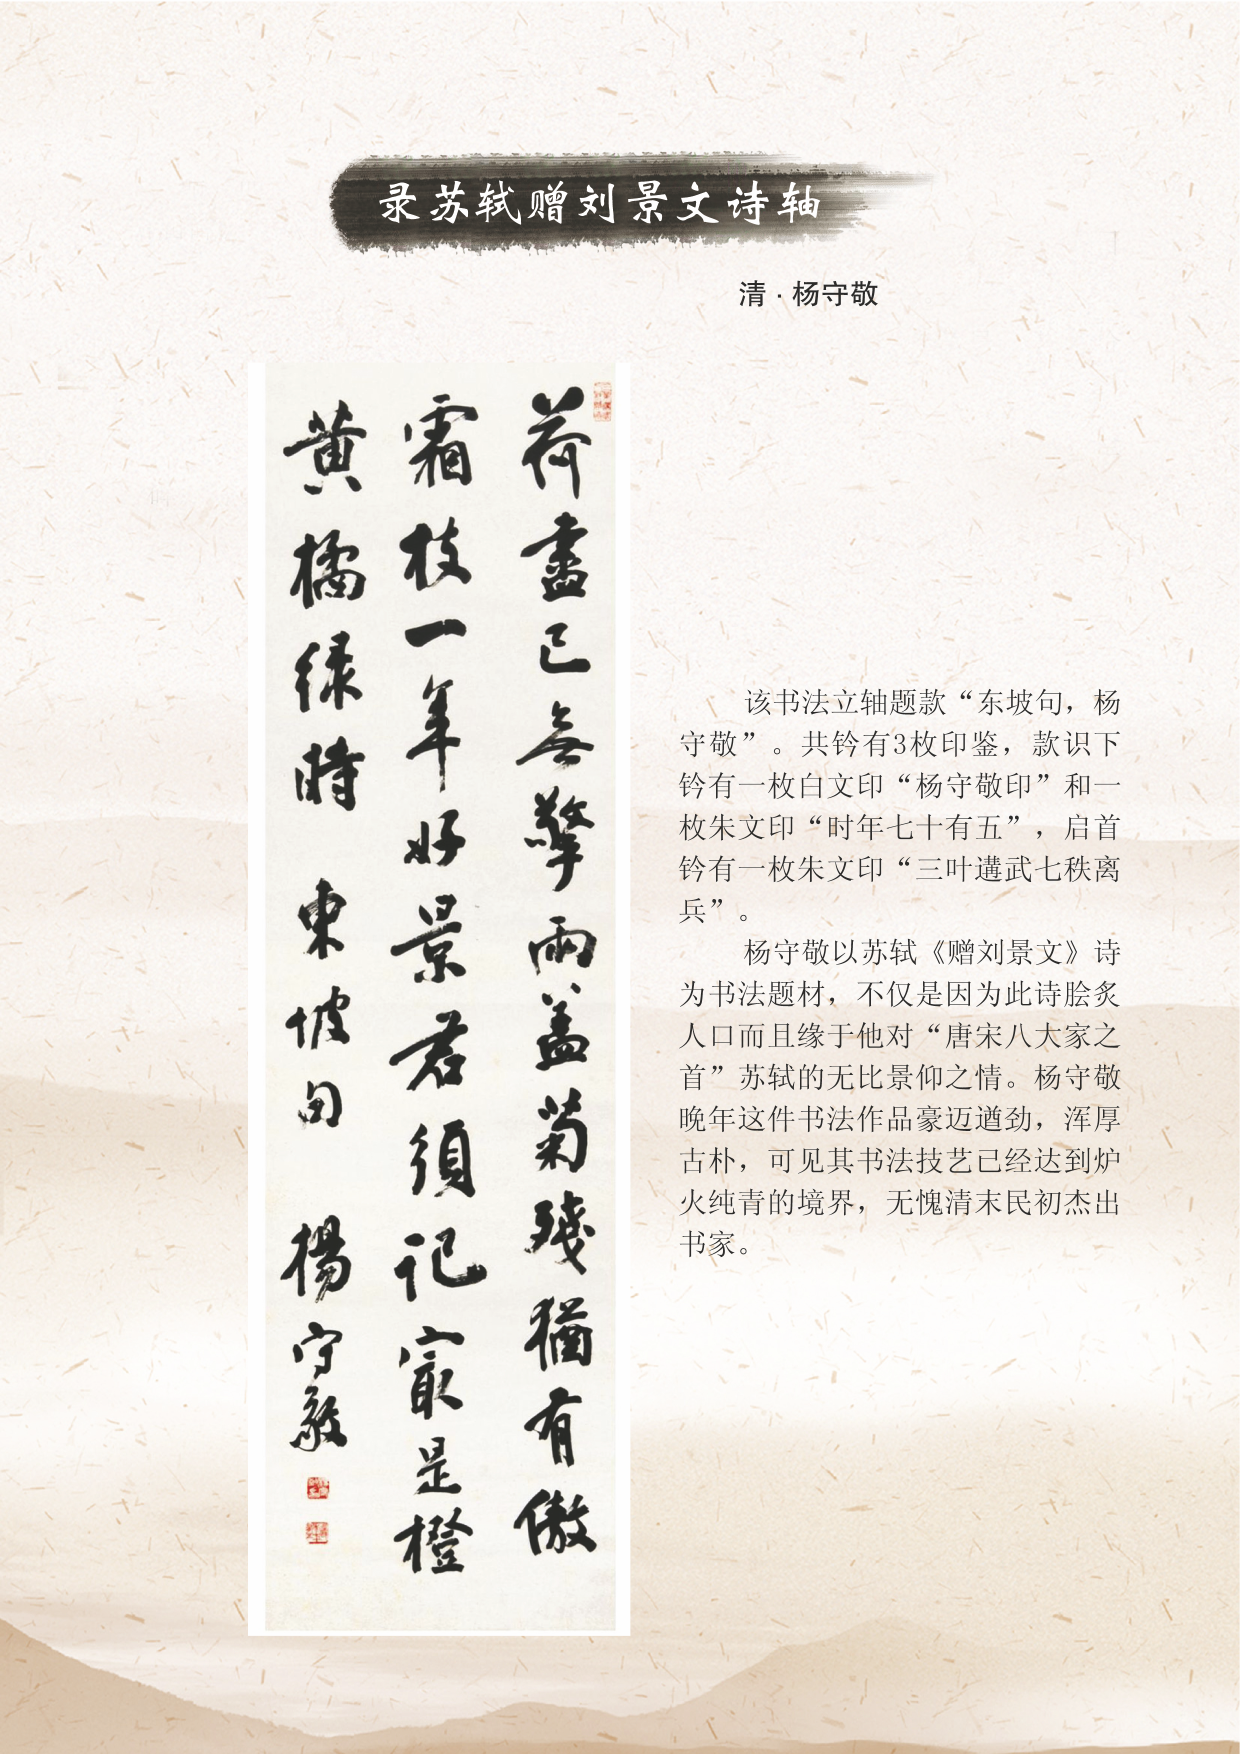 录苏轼赠刘景文诗轴
清·杨守敬
荷盡已無擎雨盖菊殘猶有傲
霜枝一年好景君須記寂是橙
黄橘緑時 東坡句 楊守敬
该书法立轴题款“东坡句，杨
守敬”。共钤有3枚印鉴，款识下
钤有一枚白文印“杨守敬印”和一
枚朱文印“时年七十有五”，启首
钤有一枚朱文印“三叶遘武七秩离
兵”。
杨守敬以苏轼《赠刘景文》诗
为书法题材，不仅是因为此诗脍炙
人口而且缘于他对“唐宋八大家之
首”苏轼的无比景仰之情。杨守敬
晚年这件书法作品豪迈遒劲，浑厚
古朴，可见其书法技艺已经达到炉
火纯青的境界，无愧清末民初杰出
书家。